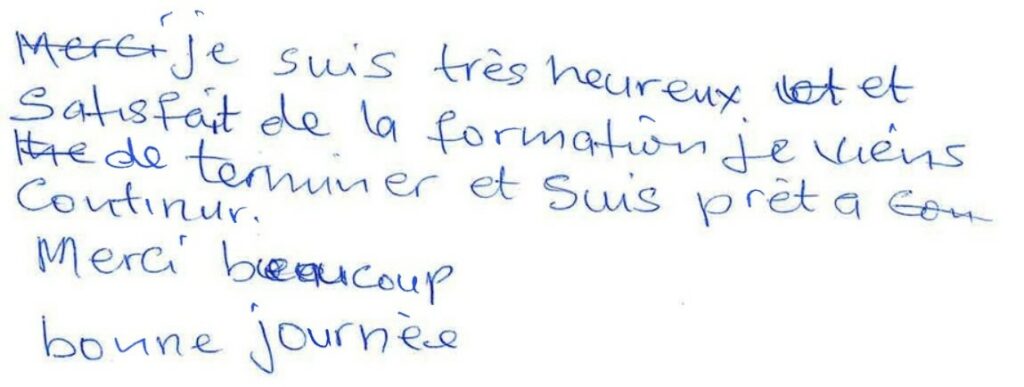 Merci je suis très heureux et et
Satisfait de la formation je viens
de terminer et Suis prêt a Con
Continur.
Merci beaucoup
bonne journèe